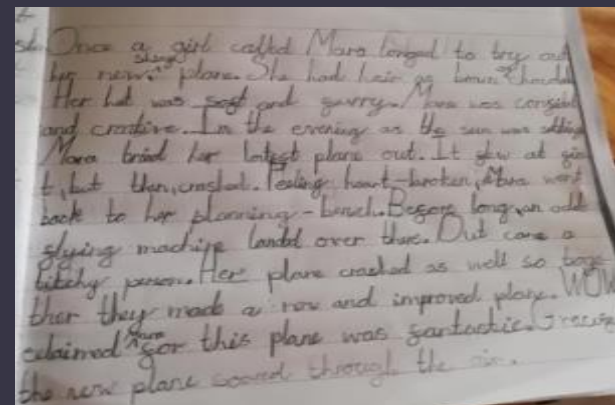 Once a girl called Mara longed to try out
her new shiny plane. She had hair as brown as chocolate
Her hat was soft and furry. Mara was
and creative. In the evening as the sun was
Mara her latest plane out. It flew at
t, but then, crashed. Feeling heart-broken, Mara went
back to her planning-bench. Before long, an odd
flying machine landd over there. Out came a
person. Her plane crashed as well so toge
ther they made a new and improved plane. WOW
Mara for this plane was fantastic.
the new plane soared through the air.